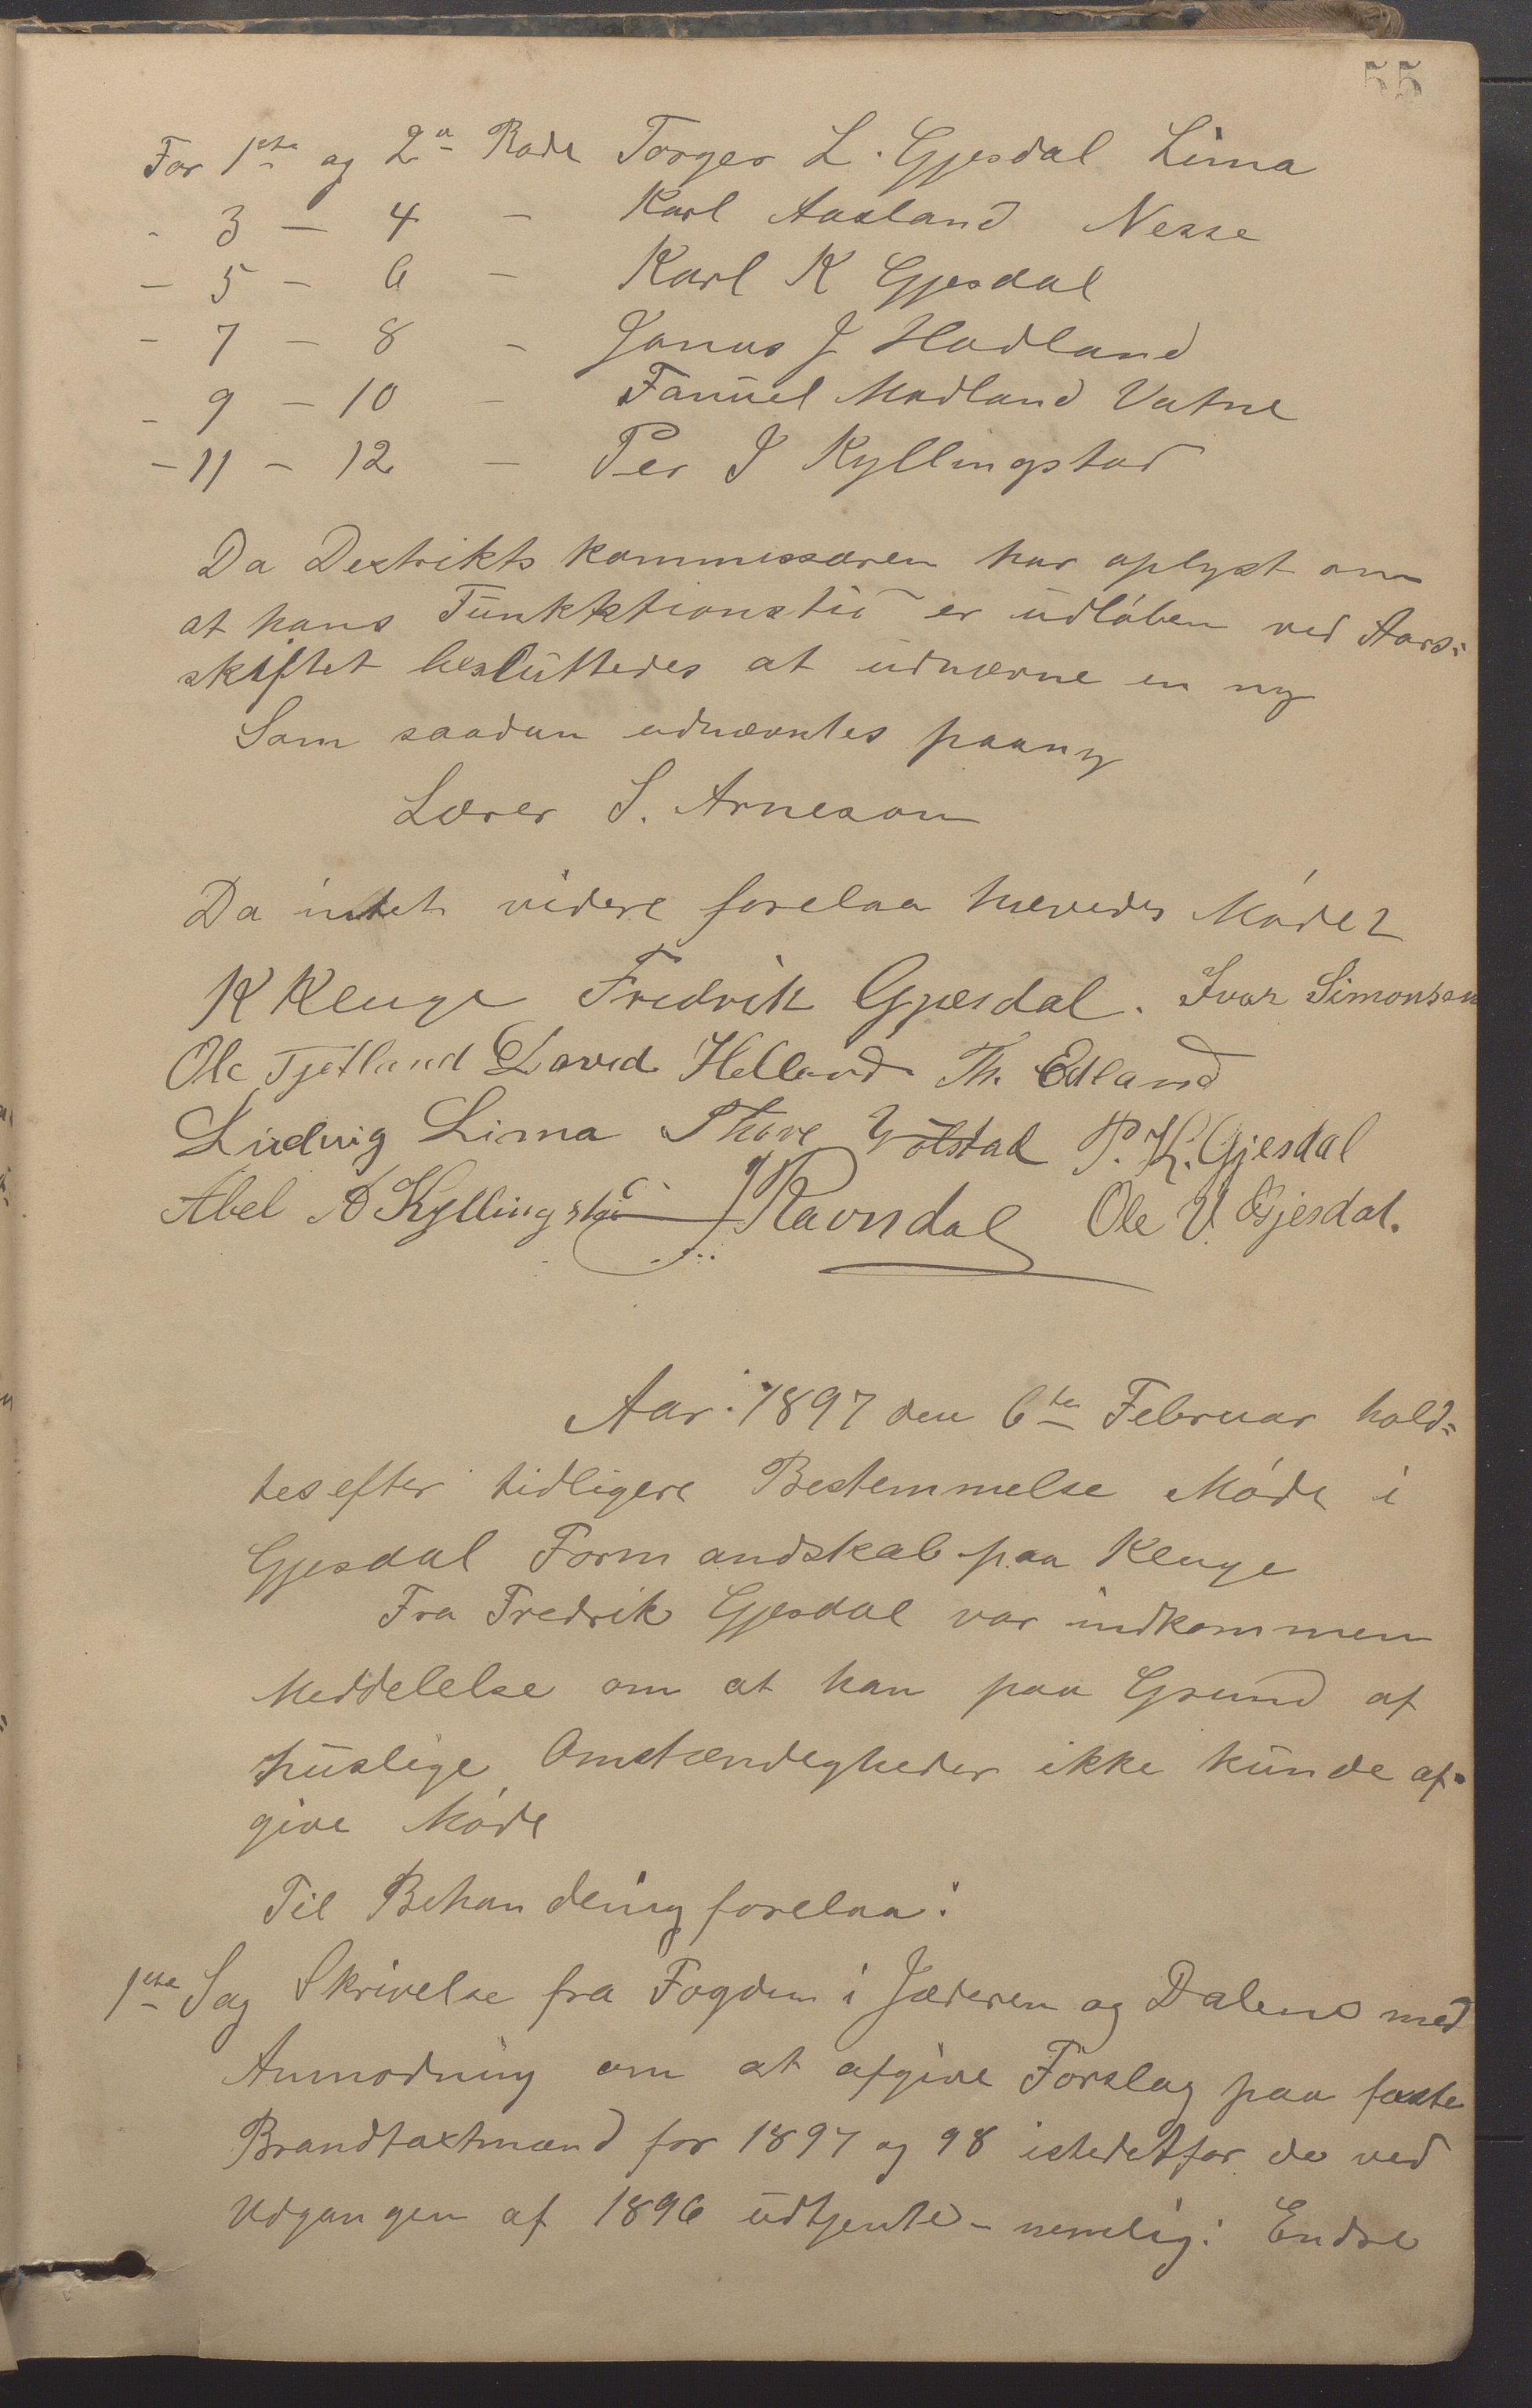 55
For 1ste og 2n Rode Torger L. Gjesdal Lima
- 3 - 4 - Karl Aasland Nesse
- 5 - 6 - Karl K Gjesdal
- 7 - 8 - Jonas J Hadland
- 9 - 10 - Fanuel Madland Vatne
- 11 - 12 - Per J Kyllingstad
Da Destrikts kommissæren har oplyst om
at hans Funkktionstid er udløben ved Aars-
skiftet besluttedes at udnævne en ny
Som saadan udnævntes paany
Lærer S. Arneson
Da intet videre forelaa hævedes Mødet
K Kluge Fredrik Gjesdal. Ivar Simonsen
Ole Tjetland David Helland Th. Edland
Ludvig Lima Thore Ydlstad P. K. Gjesdal
Abel A Kyllingstad J Ravndal Ole V. Gjesdal.
Aar 1897 den 6te Februar hold-
tes efter tidligere Bestemmelse Møde i
Gjesdal Formandskab paa Kluge
Fra Fredrik Gjesdal var indkommen
Meddelelse om at han paa Grund af
huslige Omstændegheder ikke kunde af-
give Møde
Til Behandling forelaa:
1ste Sag Skrivelse fra Fogden i Jæderen og Dalene med
Anmodning om at afgive Forslag paa faste
Brandtaxtmænd for 1897 og 98 istedetfor de ved
Udgangen af 1896 udtjente - nemlig: Endre